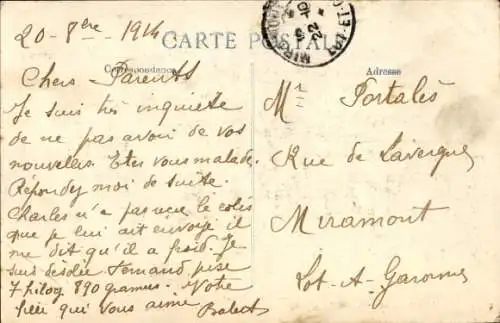 20 - 8bre - 1914
CARTE POSTALE
Correspondance
Adresse
Chers Parents
Je suis très inquiete
de ne pas avoir de vos
nouvelles. Etes vous malade.
Répondez moi de suite.
Charles n'a pas reçu le colis
que je lui ait envoyé il
me dit qu'il a froid. Je
suis desolée Fernand pèse
7 kilog 890 grames. Votre
fille qui vous aime
Mr Portalès
Rue de Lavergne
Miramont
Lot-A-Garonne